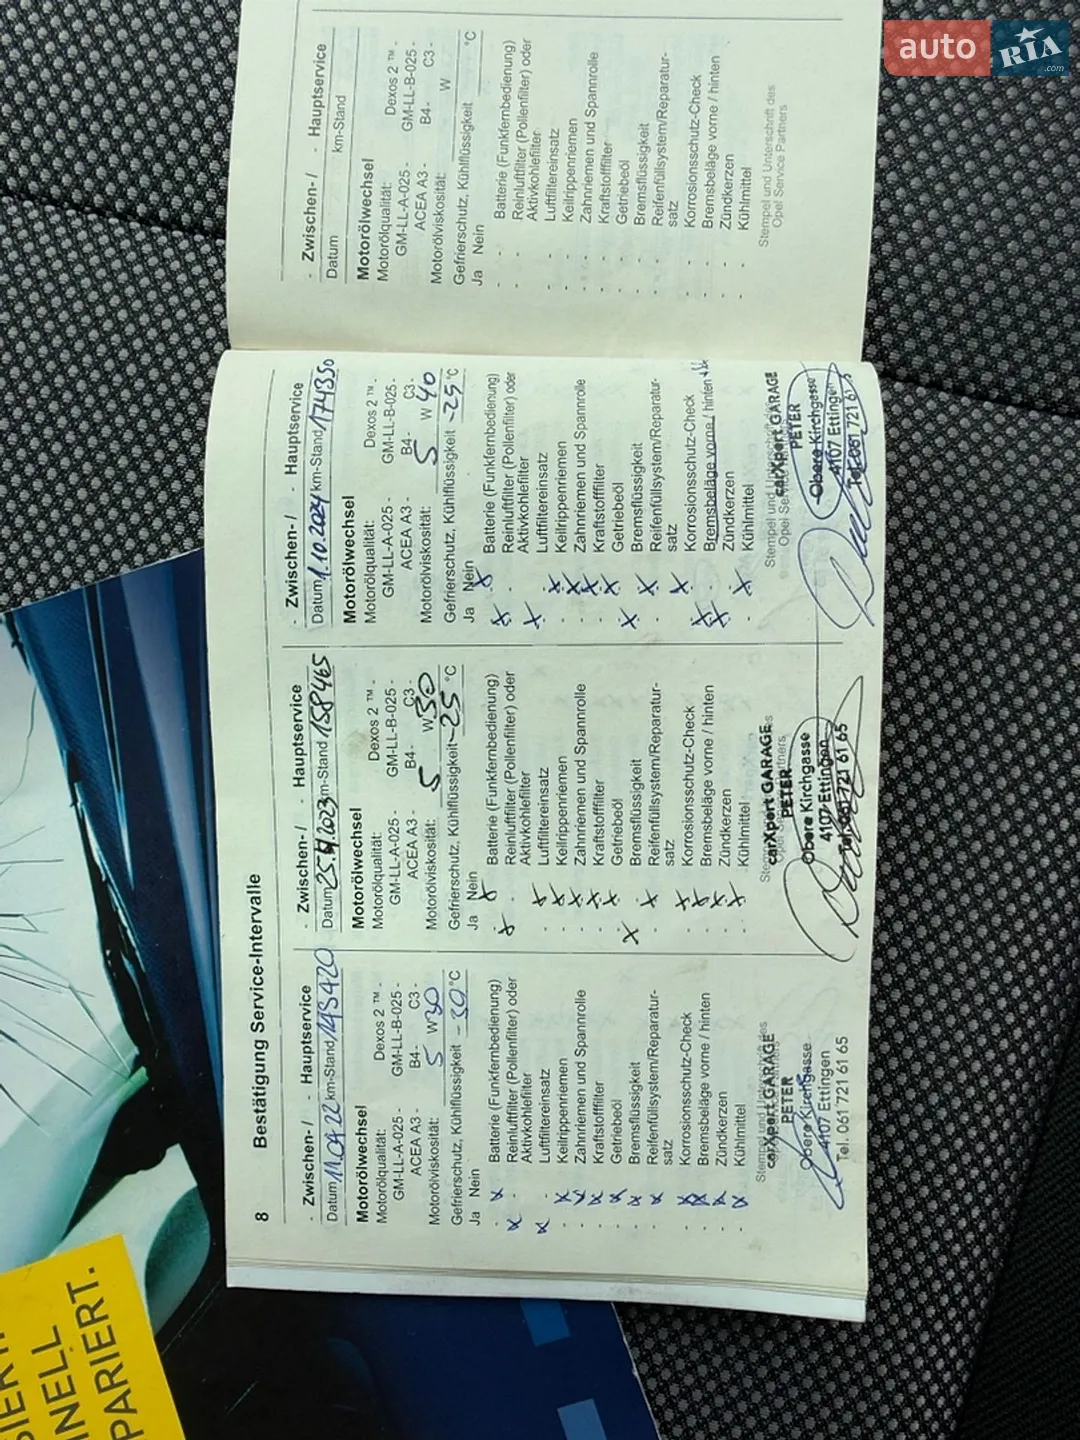 auto RIA.com
8 Bestätigung Service-Intervalle
- Zwischen- / - Hauptservice
Datum 11.04.22 km-Stand 143420
Motorölwechsel
Motorölqualität: Dexos 2 ™ -
GM-LL-A-025 - GM-LL-B-025 -
ACEA A3 - B4- C3 -
Motorölviskosität: 5 W 30
Gefrierschutz, Kühlflüssigkeit - 30 °C
Ja Nein
x Batterie (Funkfernbedienung)
x - Reinluftfilter (Pollenfilter) oder
Aktivkohlefilter
x - Luftfiltereinsatz
- x Keilrippenriemen
- x Zahnriemen und Spannrolle
- x Kraftstofffilter
- x Getriebeöl
- x Bremsflüssigkeit
- x Reifenfüllsystem/Reparatur-
satz
- x Korrosionsschutz-Check
- x Bremsbeläge vorne / hinten
- x Zündkerzen
- x Kühlmittel
Stempel und Unterschrift des
carXpert GARAGE
PETER
Obere Kirchgasse
4107 Ettingen
Tel. 061 721 61 65
- Zwischen- / - Hauptservice
Datum 25. 2023 km-Stand 158465
Motorölwechsel
Motorölqualität: Dexos 2 ™ -
GM-LL-A-025 - GM-LL-B-025 -
ACEA A3 - B4- C3
Motorölviskosität: 5 W 30
Gefrierschutz, Kühlflüssigkeit -25 °C
Ja Nein
- x Batterie (Funkfernbedienung)
x - Reinluftfilter (Pollenfilter) oder
Aktivkohlefilter
- x Luftfiltereinsatz
- x Keilrippenriemen
- x Zahnriemen und Spannrolle
- x Kraftstofffilter
- x Getriebeöl
x - Bremsflüssigkeit
- x Reifenfüllsystem/Reparatur-
satz
- x Korrosionsschutz-Check
- x Bremsbeläge vorne / hinten
- x Zündkerzen
- x Kühlmittel
carXpert GARAGE
PETER
Obere Kirchgasse
4107 Ettingen
Tel. 061 721 61 65
- Zwischen- / - Hauptservice
Datum 1.10.2024 km-Stand 174350
Motorölwechsel
Motorölqualität: Dexos 2 ™ -
GM-LL-A-025 - GM-LL-B-025 -
ACEA A3 - B4- C3 -
Motorölviskosität: 5 W 40
Gefrierschutz, Kühlflüssigkeit -25 °C
Ja Nein
- x Batterie (Funkfernbedienung)
x - Reinluftfilter (Pollenfilter) oder
Aktivkohlefilter
x - Luftfiltereinsatz
- x Keilrippenriemen
- x Zahnriemen und Spannrolle
- x Kraftstofffilter
- x Getriebeöl
x - Bremsflüssigkeit
- x Reifenfüllsystem/Reparatur-
satz
- x Korrosionsschutz-Check
x - Bremsbeläge vorne / hinten
x - Zündkerzen
- x Kühlmittel
Stempel und Unterschrift des
Opel Service
carXpert GARAGE
PETER
Obere Kirchgasse
4107 Ettingen
Tel. 061 721 61
- Zwischen- / - Hauptservice
Datum km-Stand
Motorölwechsel
Motorölqualität: Dexos 2 ™ -
GM-LL-A-025 - GM-LL-B-025 -
ACEA A3 - B4- C3 -
Motorölviskosität: W
Gefrierschutz, Kühlflüssigkeit °C
Ja Nein
- - Batterie (Funkfernbedienung)
- - Reinluftfilter (Pollenfilter) oder
Aktivkohlefilter
- - Luftfiltereinsatz
- - Keilrippenriemen
- - Zahnriemen und Spannrolle
- - Kraftstofffilter
- - Getriebeöl
- - Bremsflüssigkeit
- - Reifenfüllsystem/Reparatur-
satz
- - Korrosionsschutz-Check
- - Bremsbeläge vorne / hinten
- - Zündkerzen
- - Kühlmittel
Stempel und Unterschrift des
Opel Service Partners
NELL
PARIERT.